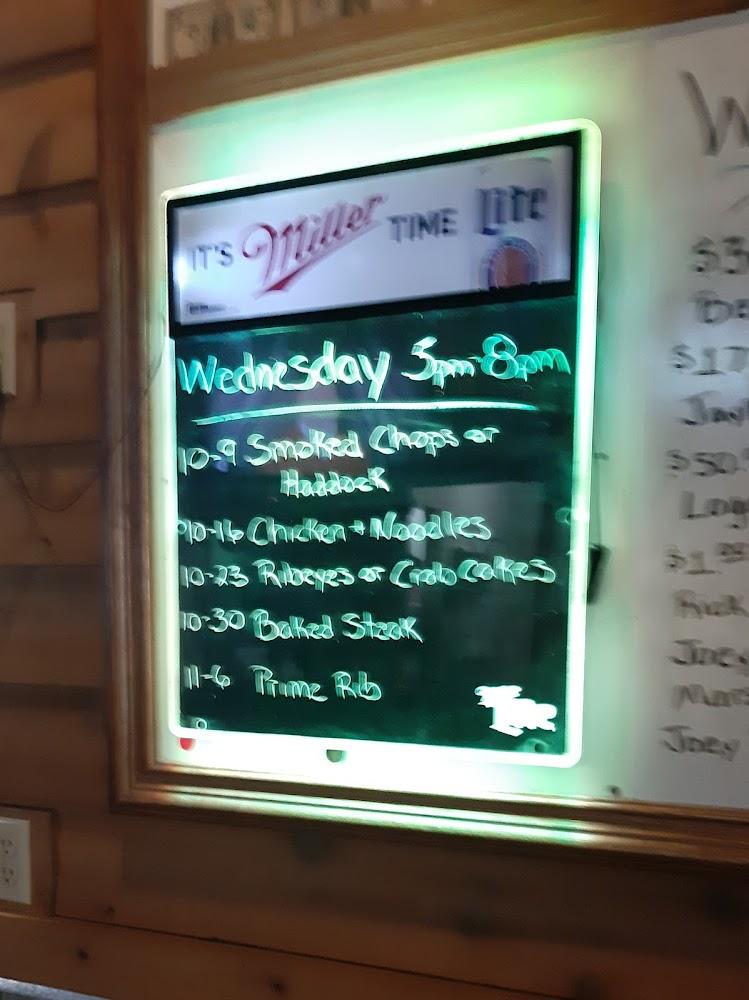 IT'S Miller TIME Lite
Wednesday 5pm-8pm
10-9 Smoked Chops or
Haddock
10-16 Chicken + Noodles
10-23 Ribeyes or Crab Cakes
10-30 Baked Steak
11-6 Prime Rib
Lite
$17
$50.
$1.
Rick
Joey
Joey